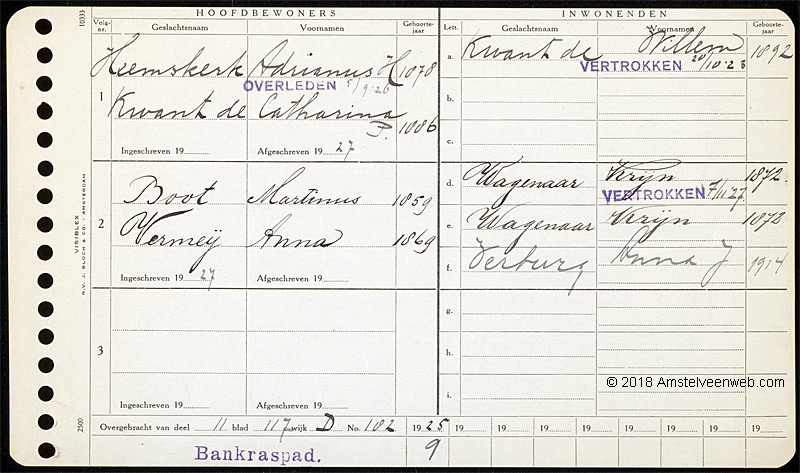 HOOFDBEWONERS
Volg-nr. Geslachtsnaam Voornamen Geboorte-jaar
Heemskerk Adrianus H 1878
OVERLEDEN 5/9·26
1
Kwant de Catharina P. 1886
Ingeschreven 19 Afgeschreven 19 27
Boot Martinus 1859
2
Vermeij Anna 1869
Ingeschreven 19 27 Afgeschreven 19
3
Ingeschreven 19 Afgeschreven 19
INWONENDEN
Lett. Geslachtsnaam Voornamen Geboorte-jaar
a. Kwant de Willem 1892
VERTROKKEN 20/10·23
b.
c.
d. Wagenaar Krijn 1872.
VERTROKKEN 7/11 27
e. Wagenaar Krijn 1872
f. Verburg Anna J 1914
g.
h.
i.
© 2018 Amstelveenweb.com
Overgebracht van deel 11 blad 117 wijk D No. 182 1925 19 19 19 19 19 19 19 19
Bankraspad. 9
10333
VISIBLEX
N.V. J. BLOCH & CO. - AMSTERDAM
2500